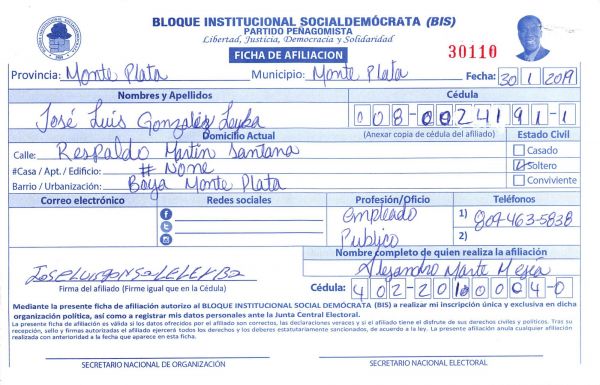 BLOQUE INSTITUCIONAL SOCIALDEMÓCRATA (BIS)
PARTIDO PEÑAGOMISTA
Libertad, Justicia, Democracia y Solidaridad
FICHA DE AFILIACION
30110
Provincia: Monte Plata Municipio: Monte Plata Fecha: 30 1 2019
Nombres y Apellidos Cédula
José Luis González Leyba 008-0024191-1
Domicilio Actual (Anexar copia de cédula del afiliado) Estado Civil
Calle: Respaldo Martin Santana Casado
#Casa / Apt. / Edificio: # None Soltero
Barrio / Urbanización: Boya Monte Plata Conviviente
Correo electrónico Redes sociales Profesión/Oficio Teléfonos
empleado 1) 809-463-5838
Publico 2)
Nombre completo de quien realiza la afiliación
Alejandro Marte Mejía
Firma del afiliado (Firme igual que en la Cédula) Cédula: 402-2010004-0
Mediante la presente ficha de afiliación autorizo al BLOQUE INSTITUCIONAL SOCIAL DEMÓCRATA (BIS) a realizar mi inscripción única y exclusiva en dicha
organización política, así como a registrar mis datos personales ante la Junta Central Electoral.
La presente ficha de afiliación es válida si los datos ofrecidos por el afiliado son correctos, las declaraciones veraces y si el afiliado tiene el disfrute de sus derechos civiles y políticos. Tras su
recepción, sello y firmas autorizadas el afiliado ejercerá todos los derechos y los deberes estatutariamente sancionados, de acuerdo a la ley. La presente afiliación anula cualquier afiliación
realizada con anterioridad a la fecha que aparece en esta ficha.
SECRETARIO NACIONAL DE ORGANIZACIÓN SECRETARIO NACIONAL ELECTORAL